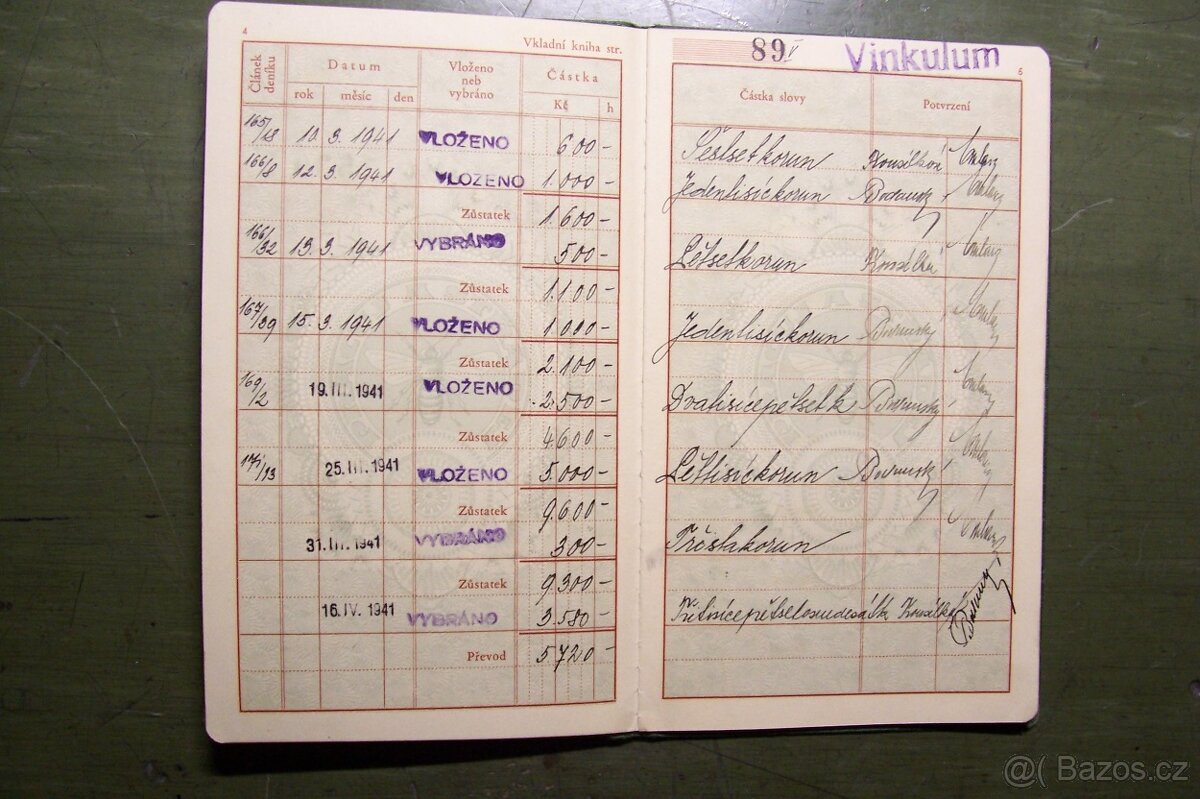 4
Vkladní kniha str.
89
Vinkulum
5
Článek deníku
Datum
Vloženo neb vybráno
Částka
Částka slovy
Potvrzení
rok měsíc den
Kč h
165/18 10. 3. 1941 VLOŽENO 600 –
166/8 12. 3. 1941 VLOŽENO 1.000 – Jedentisíckorun
Zůstatek 1.600 –
166/32 13. 3. 1941 VYBRÁNO 500 –
Zůstatek 1.100 –
167/39 15. 3. 1941 VLOŽENO 1.000 – Jedentisíckorun
Zůstatek 2.100 –
169/2 19. III. 1941 VLOŽENO 2.500 – Dvatisícepětset k
Zůstatek 4.600 –
171/13 25. III. 1941 VLOŽENO 5.000 – Pěttisíckorun
Zůstatek 9.600 –
31. III. 1941 VYBRÁNO 300 – Třistakorun
Zůstatek 9.300 –
16. IV. 1941 VYBRÁNO 3.580 –
Převod 5720 –
@( Bazos.cz